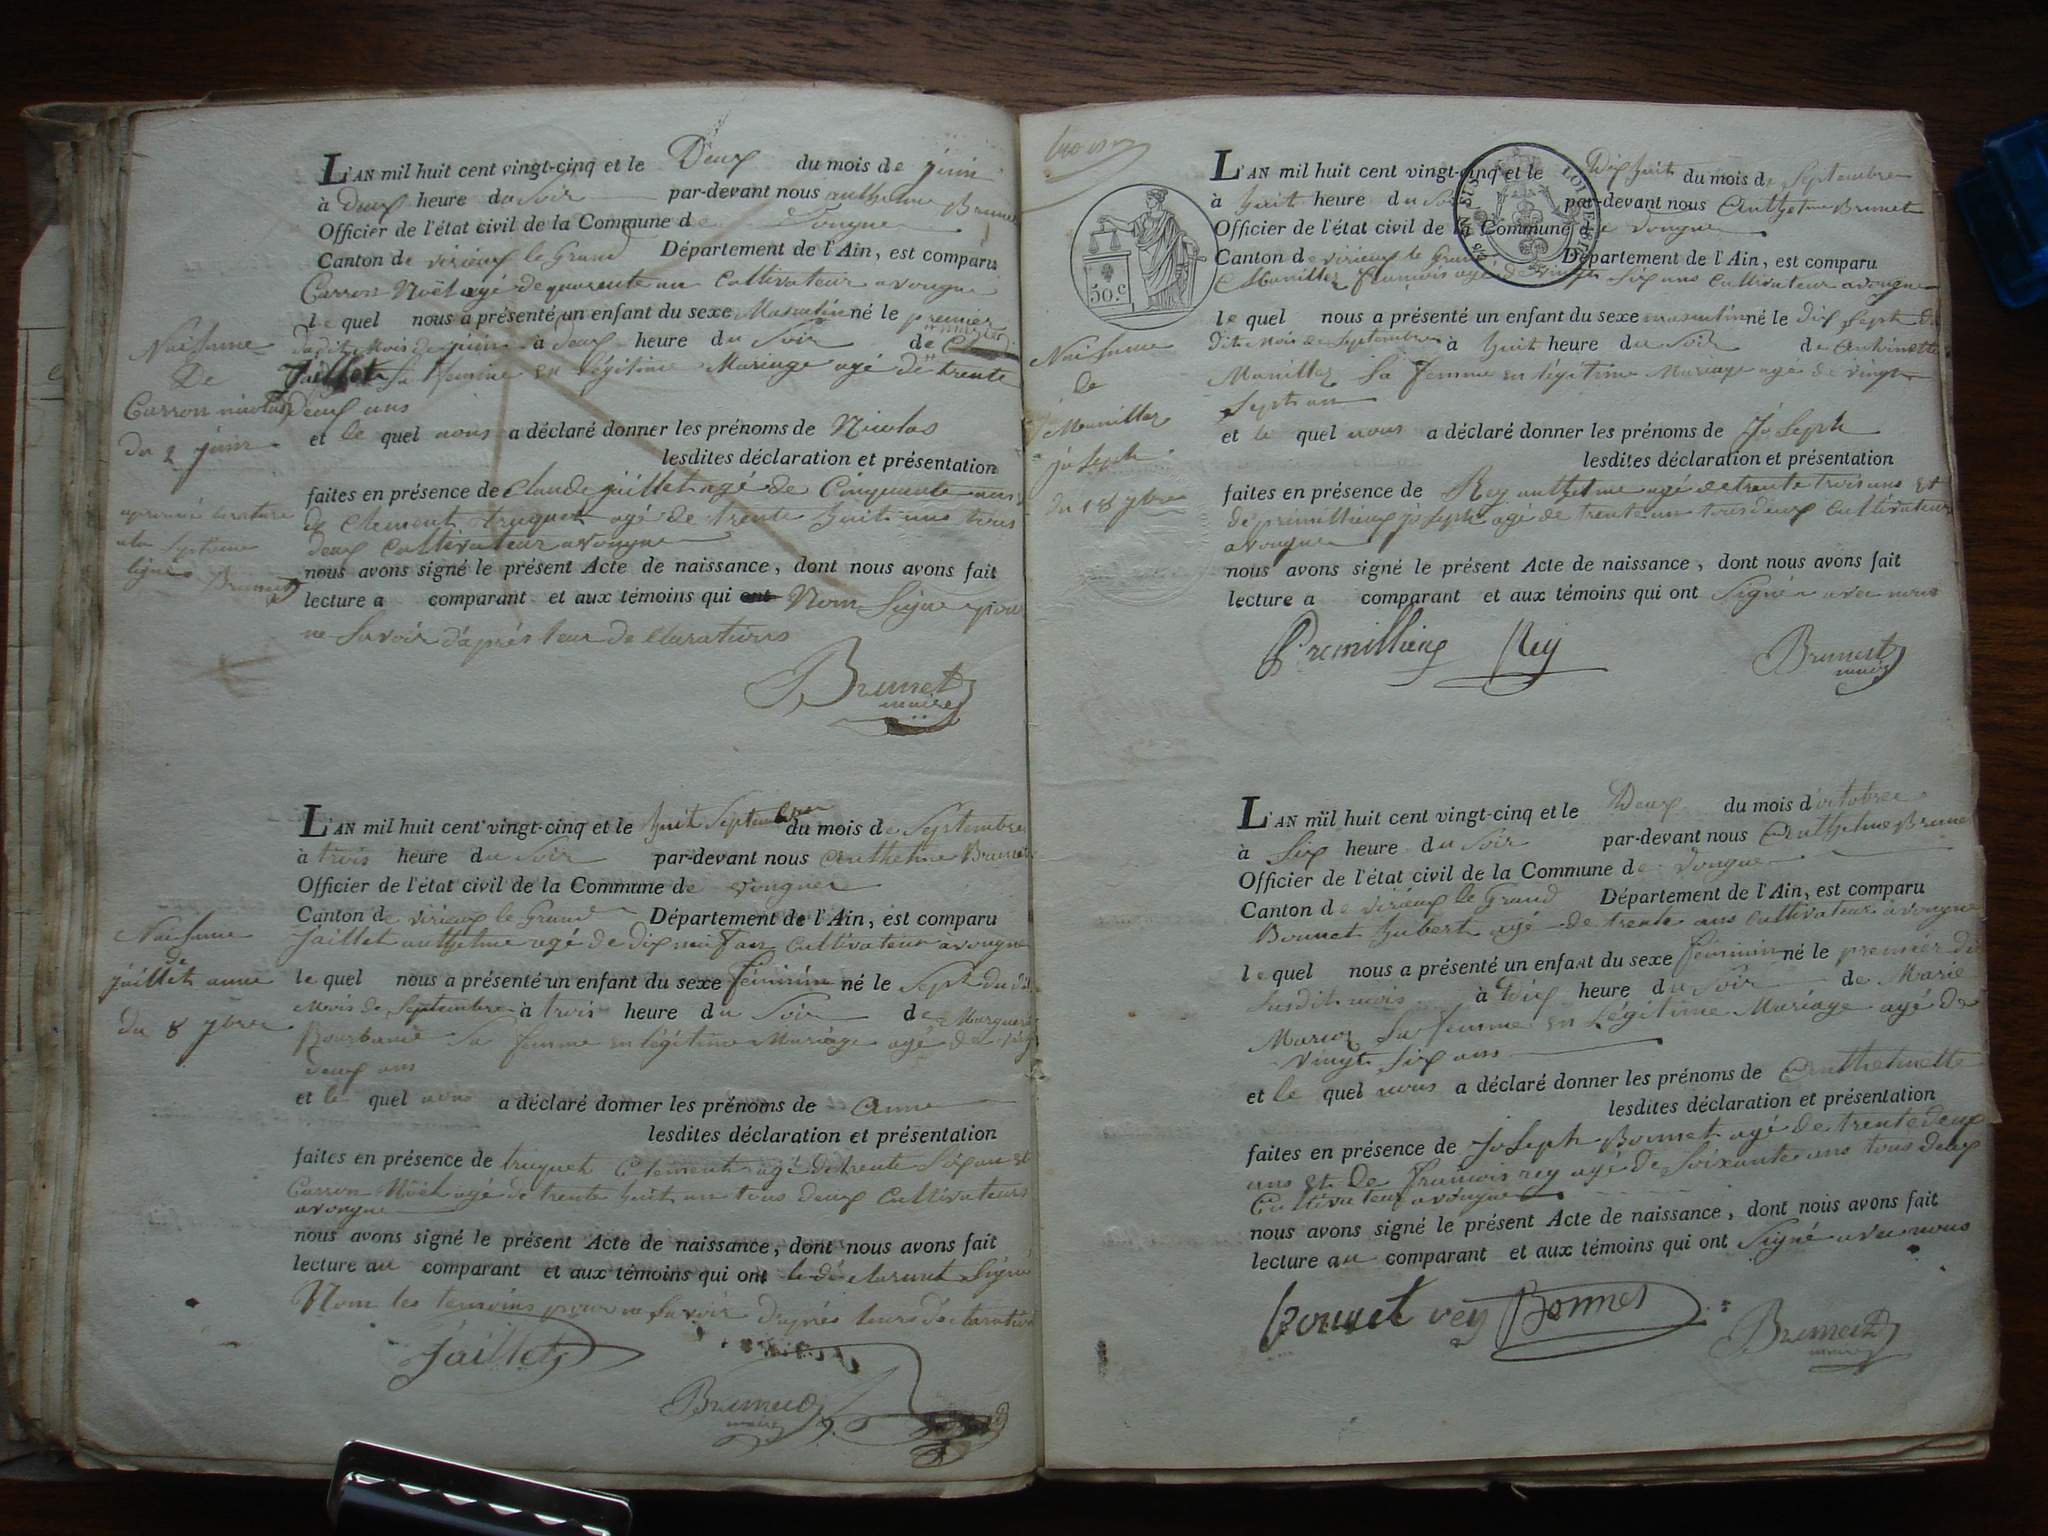 L'AN mil huit cent vingt-cinq et le Deux du mois de juin
à Deux heure du Soir par-devant nous anthelme Brunet
Officier de l'état civil de la Commune de Vongne
Canton de virieux le Grand Département de l'Ain, est comparu
Carron Noël agé de quarente an Cultivateur a vongne
le quel nous a présenté un enfant du sexe Masculin né le premier
dudit Mois de juin à deux heure du Soir de
Jaillet Sa femme en légitime Mariage agé de trente
deux ans
et le quel nous a déclaré donner les prénoms de Nicolas
lesdites déclaration et présentation
faites en présence de Claude jaillet agé de Cinquante ans
de Clement truquet agé de trente huit ans tous
deux Cultivateur a vongne
nous avons signé le présent Acte de naissance, dont nous avons fait
lecture a comparant et aux témoins qui ont Nom Signe pour
ne Savoir d'après leur declarations
Brunet
maire
Naissance
De
Carron nicolas
du 2 juin
Brunet
L'AN mil huit cent vingt-cinq et le huit Septembre du mois de Septembre
à trois heure du Soir par-devant nous Anthelme Brunet
Officier de l'état civil de la Commune de vongne
Canton de virieux le Grand Département de l'Ain, est comparu
Jaillet anthelme agé de dix neuf an Cultivateur a vongne
le quel nous a présenté un enfant du sexe féminin né le Sept du dit
Mois de Septembre à trois heure du Soir de Marguerite
Sa femme en légitime Mariage agé de
deux ans
et le quel nous a déclaré donner les prénoms de Anne
lesdites déclaration et présentation
faites en présence de truquet Clement agé de trente Six an et
Carron Noël agé de trente huit an tous deux Cultivateurs
a vongne
nous avons signé le présent Acte de naissance, dont nous avons fait
lecture au comparant et aux témoins qui ont le déclarant Signé
Nom les temoins pour ne Savoir d'après leurs déclaration
Jaillet
Brunet
maire
Naissance
de
jaillet anne
du 8 7bre
L'AN mil huit cent vingt-cinq et le Dix huit du mois de Septembre
à huit heure du Soir par-devant nous Anthelme Brunet
Officier de l'état civil de la Commune de vongne
Canton de virieux le Grand Département de l'Ain, est comparu
François agé de vingt Six ans Cultivateur a vongne
le quel nous a présenté un enfant du sexe masculin né le dix Sept du
dit Mois de Septembre à huit heure du Soir de Antoinette
Sa femme en légitime Mariage agé de vingt
Sept an
et le quel nous a déclaré donner les prénoms de JoSeph
lesdites déclaration et présentation
faites en présence de Rey anthelme agé de trente trois ans et
de premillieux joSeph agé de trente un tous deux Cultivateur
a vongne
nous avons signé le présent Acte de naissance, dont nous avons fait
lecture a comparant et aux témoins qui ont Signé avec nous
Premillieux Rey Brunet
maire
50 c
Naissance
de
joSeph
du 18 7bre
L'AN mil huit cent vingt-cinq et le Deux du mois d'octobre
à Six heure du Soir par-devant nous Anthelme Brunet
Officier de l'état civil de la Commune de vongne
Canton de virieux le Grand Département de l'Ain, est comparu
Bonnet hubert agé de trente ans Cultivateur a vongne
le quel nous a présenté un enfant du sexe féminin né le premier du
Susdit mois à Dix heure du Soir de Marie
Sa femme en Légitime Mariage agé de
vingt Six ans
et le quel nous a déclaré donner les prénoms de Anthelmette
lesdites déclaration et présentation
faites en présence de JoSeph Bonnet agé de trente deux
ans et De françois rey agé de Soixante ans tous deux
Cultivateur a vongne
nous avons signé le présent Acte de naissance, dont nous avons fait
lecture au comparant et aux témoins qui ont Signé avec nous
bonnet rey Bonnet
Brunet
maire